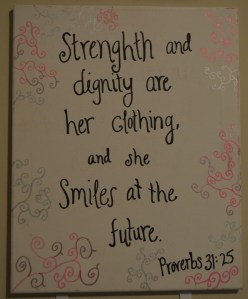 Strenghth and
dignity are
her clothing,
and she
Smiles at the
future.
Proverbs 31:25